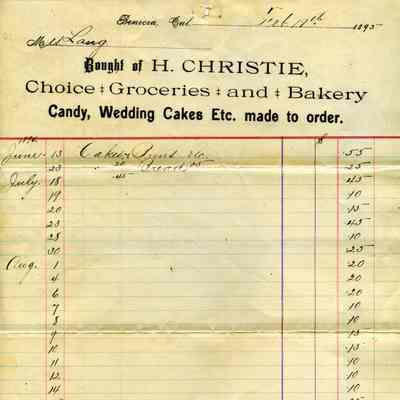 Benicia, Cal Feb 19th 1895
M W Lang
Bought of H. CHRISTIE,
Choice Groceries and Bakery
Candy, Wedding Cakes Etc. made to order.
$
June 13 Cakes, Buns etc. .55
23 20 Bread, 05 .25
July 18 .45 .45
19 .10
20 .15
23 .45
28 .10
30 .25
Aug. 1 .20
4 .20
6 .20
7 .10
8 .10
9 .15
10 .15
11 .10
12 .10
14 .10